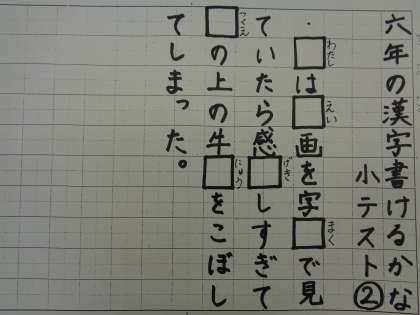 六年の漢字書けるかな
小テスト②
・□わたしは□えい画を字□まくで見
ていたら感□げきしすぎて
□つくえの上の牛□にゅうをこぼし
てしまった。